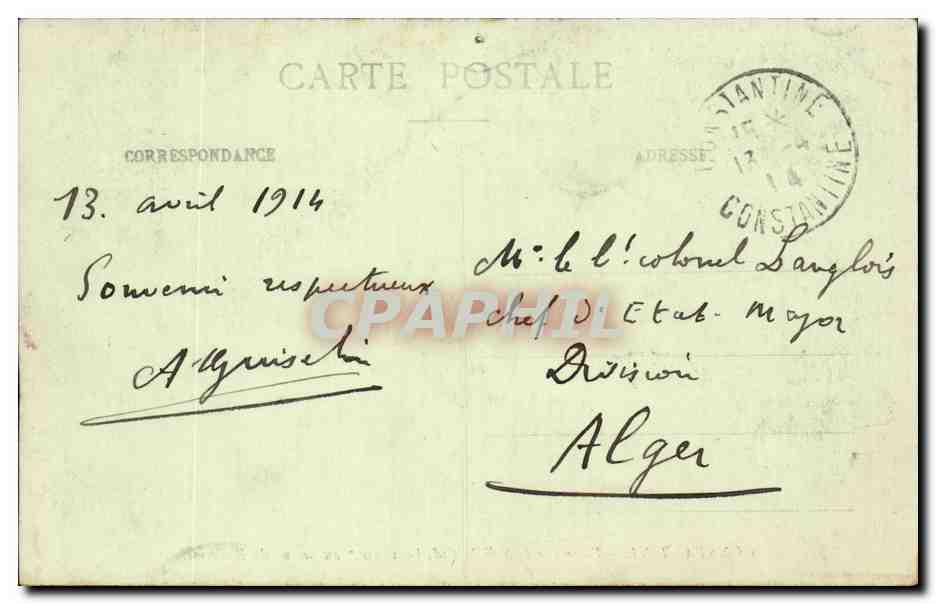 CARTE POSTALE
CORRESPONDANCE
ADRESSE
CONSTANTINE
13 -4
14
CONSTANTINE
13. avril 1914
Souvenir respectueux
Mr. le lt colonel Langlois
chef d'Etat-Major
Division
Alger
CPAPHIL